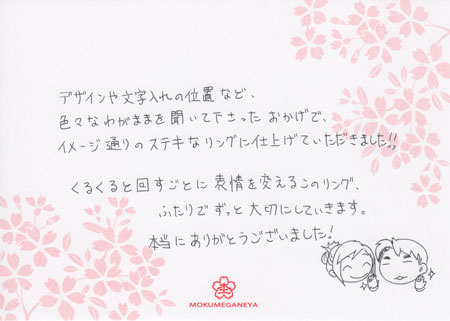 デザインや文字入れの位置など、
色々なわがままを聞いて下さった おかげで、
イメージ通りのステキなリングに仕上げていただきました!!
くるくると回すごとに表情を変えるこのリング、
ふたりでずっと大切にしていきます。
本当にありがとうございました!
MOKUMEGANEYA